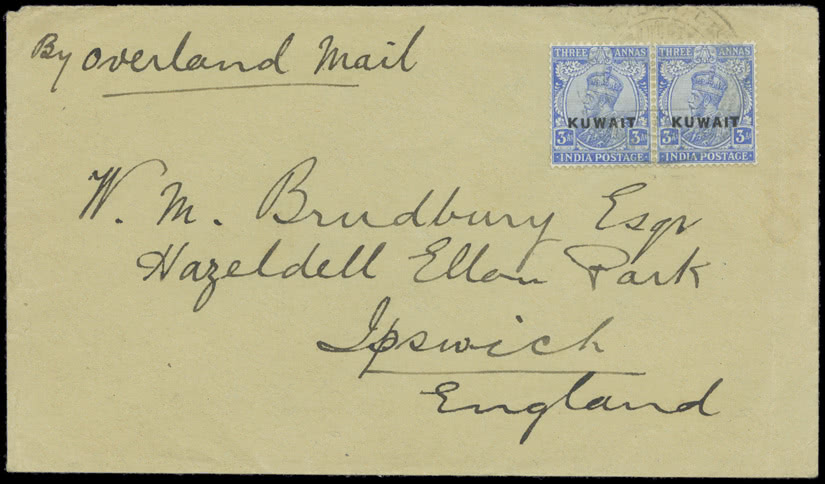 By Overland Mail
THREE ANNAS THREE ANNAS
KUWAIT KUWAIT
3As 3As 3As 3As
INDIA POSTAGE INDIA POSTAGE
W. M. Brudbury Esqr
Hazeldell Ellon Park
Ipswich
England